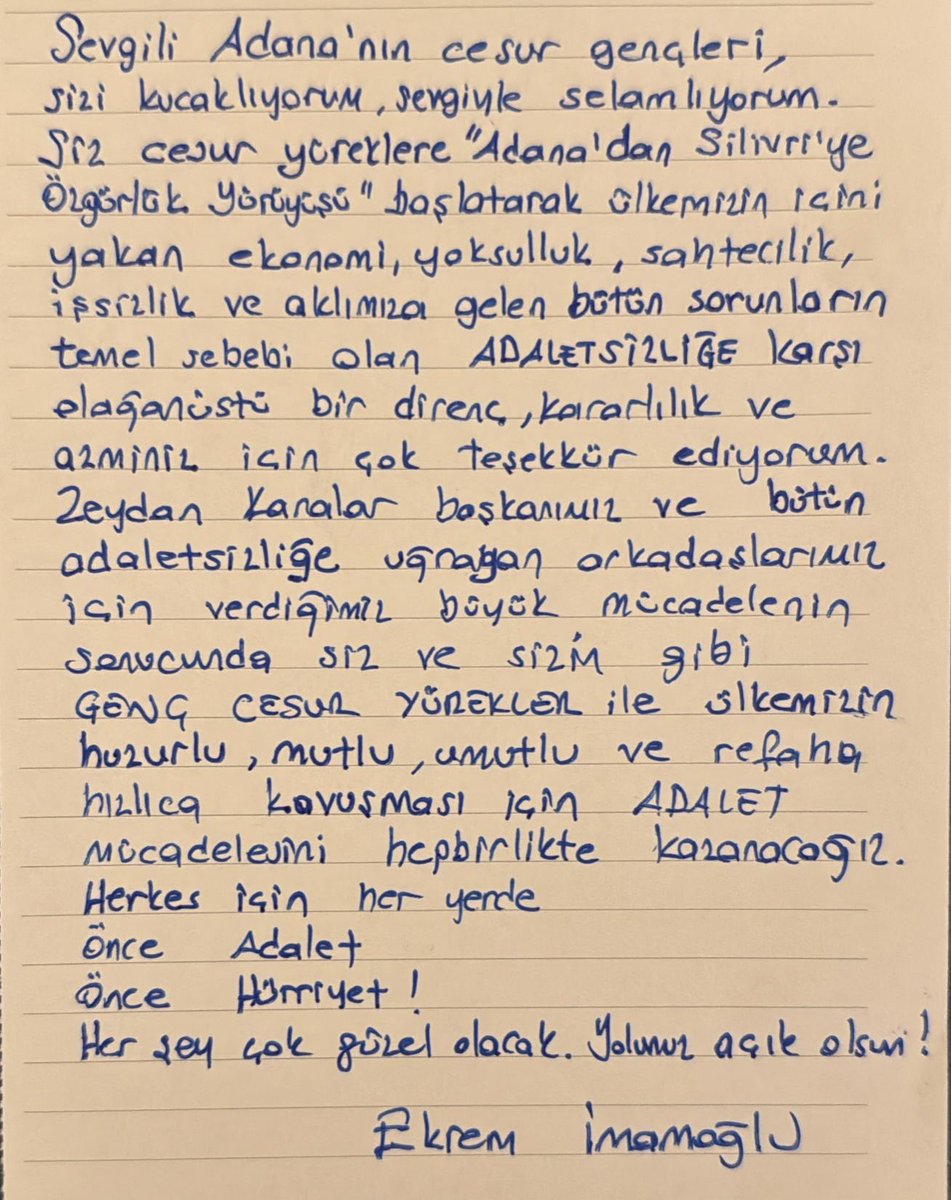 Sevgili Adana'nın cesur gençleri,
sizi kucaklıyorum, sevgiyle selamlıyorum.
Siz cesur yüreklere "Adana'dan Silivri'ye
Özgürlük Yürüyüşü" başlatarak ülkemizin içini
yakan ekonomi, yoksulluk, sahtecilik,
işsizlik ve aklımıza gelen bütün sorunların
temel sebebi olan ADALETSİZLİĞE karşı
olağanüstü bir direnç, kararlılık ve
azminiz için çok teşekkür ediyorum.
Zeydan Karalar başkanımız ve bütün
adaletsizliğe uğrayan arkadaşlarımız
için verdiğimiz büyük mücadelenin
sonucunda siz ve sizin gibi
GENÇ CESUR YÜREKLER ile ülkemizin
huzurlu, mutlu, umutlu ve refaha
hızlıca kavuşması için ADALET
mücadelesini hepbirlikte kazanacağız.
Herkes için her yerde
Önce Adalet
Önce Hürriyet!
Her şey çok güzel olacak. Yolunuz açık olsun!
Ekrem İmamoğlu